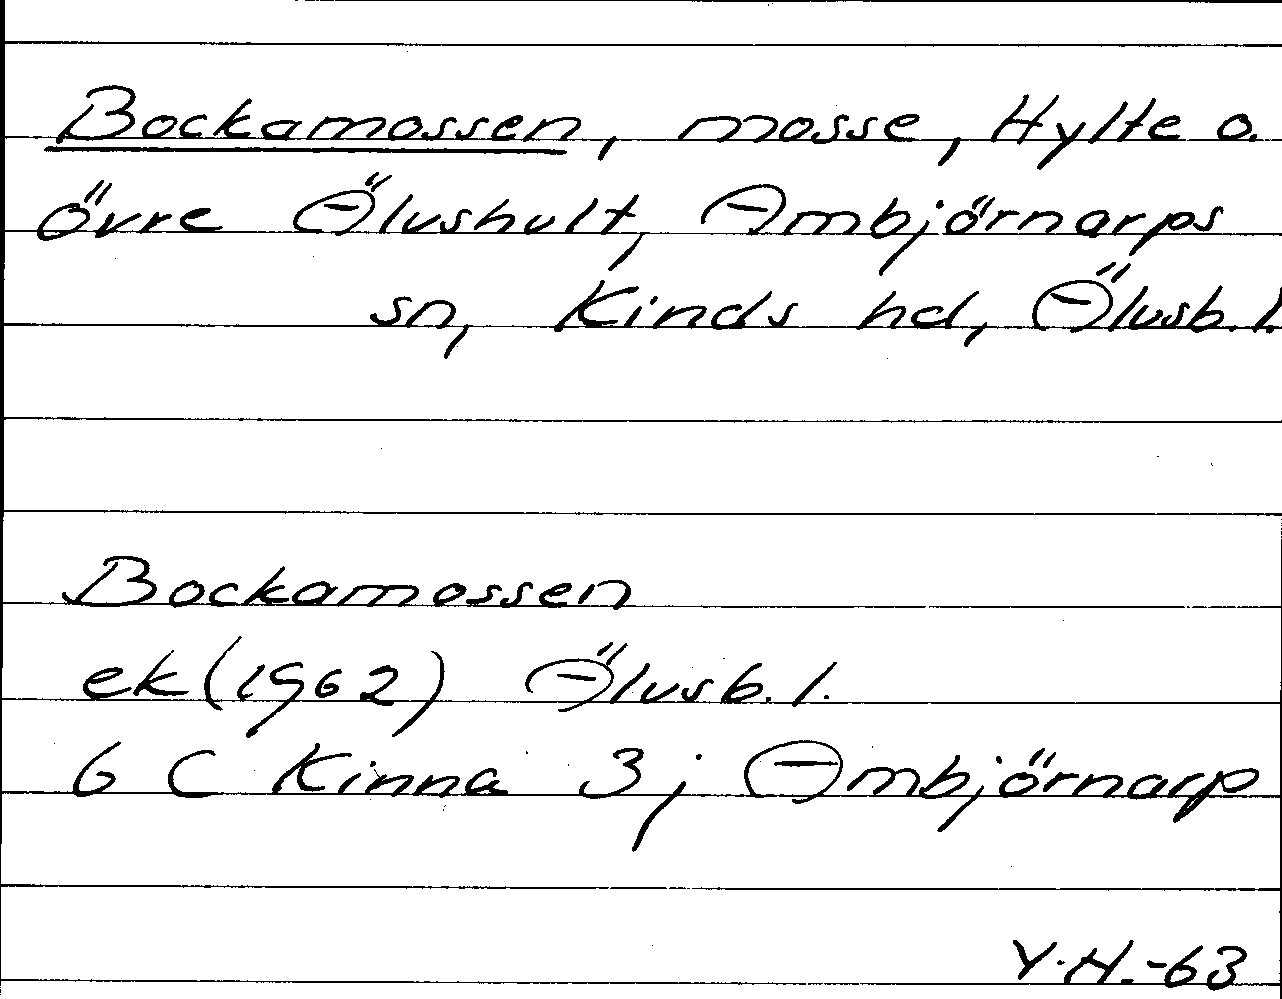 Bockamossen, mosse, Hylte o.
övre Älvshult, Ambjörnarps
sn, Kinds hd, Älvsb. l.
Bockamossen
ek (1962) Älvsb. l.
6 C Kinna 3j Ambjörnarp
Y.H.-63